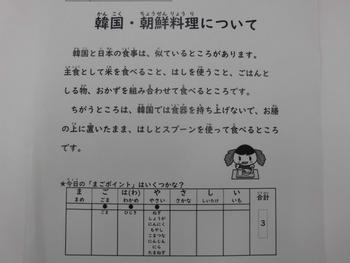 韓国・朝鮮料理について
韓国と日本の食事は、似ているところがあります。
主食として米を食べること、はしを使うこと、ごはんと
しる物、おかずを組み合わせて食べるところです。
ちがうところは、韓国では食器を持ち上げないで、お膳
の上に置いたまま、はしとスプーンを使って食べるところ
です。
★今日の「まごポイント」はいくつかな?
ま ご は(わ) や さ し い 合計
まめ ごま わかめ やさい さかな しいたけ いも
● ● ●
ごま ひじき ねぎ
しょうが
にんにく
もやし
こまつな
にんじん
にら
たまねぎ
3